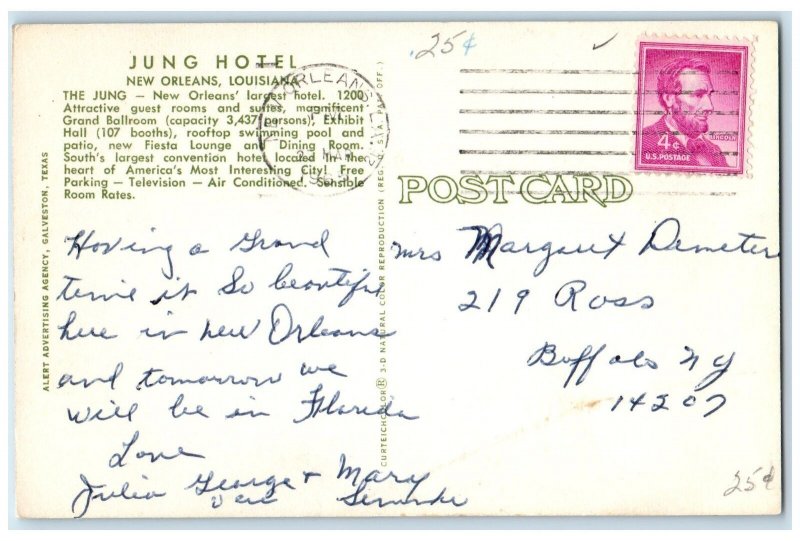 JUNG HOTEL
NEW ORLEANS, LOUISIANA
THE JUNG — New Orleans' largest hotel. 1200
Attractive guest rooms and suites, magnificent
Grand Ballroom (capacity 3,437 persons), Exhibit
Hall (107 booths), rooftop swimming pool and
patio, new Fiesta Lounge and Dining Room.
South's largest convention hotel located in the
heart of America's Most Interesting City! Free
Parking — Television — Air Conditioned. Sensible
Room Rates.
ALERT ADVERTISING AGENCY, GALVESTON, TEXAS
Having a Grand
time it So beautiful
here in New Orleans
and tomorrow we
will be in Florida
Love
Julia George + Mary
CURTEICHCOLOR® 3-D NATURAL COLOR REPRODUCTION (REG. U.S.A. PAT. OFF.)
NEW ORLEANS, LA.
25¢
LINCOLN
4¢
U.S. POSTAGE
POST CARD
Mrs Margaret Demeter
219 Ross
Buffalo NY
14207
25¢